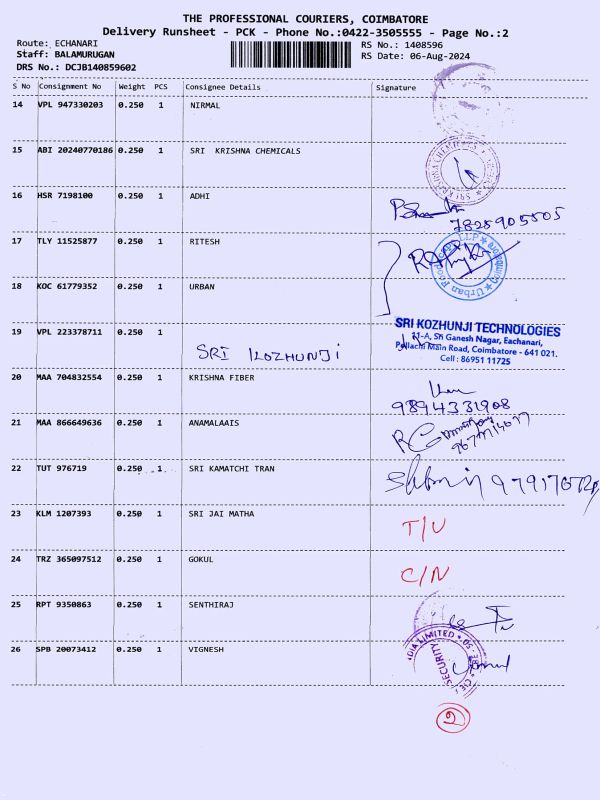 THE PROFESSIONAL COURIERS, COIMBATORE
Delivery Runsheet - PCK - Phone No.:0422-3505555 - Page No.:2
Route: ECHANARI
Staff: BALAMURUGAN
DRS No.: DCJB140859602
RS No.: 1408596
RS Date: 06-Aug-2024
S No Consignment No Weight PCS Consignee Details Signature
14 VPL 947330203 0.250 1 NIRMAL
15 ABI 20240770186 0.250 1 SRI KRISHNA CHEMICALS
16 HSR 7198100 0.250 1 ADHI
7825905505
17 TLY 11525877 0.250 1 RITESH
18 KOC 61779352 0.250 1 URBAN
19 VPL 223378711 0.250 1
SRI KOZHUNJI
SRI KOZHUNJI TECHNOLOGIES
11-A, Sri Ganesh Nagar, Eachanari,
Pollachi Main Road, Coimbatore - 641 021.
Cell : 86951 11725
20 MAA 704832554 0.250 1 KRISHNA FIBER
9894331908
21 MAA 866649636 0.250 1 ANAMALAAIS
22 TUT 976719 0.250 1 SRI KAMATCHI TRAN
23 KLM 1207393 0.250 1 SRI JAI MATHA
T/U
24 TRZ 365097512 0.250 1 GOKUL
C/N
25 RPT 9350863 0.250 1 SENTHIRAJ
26 SPB 20073412 0.250 1 VIGNESH
2